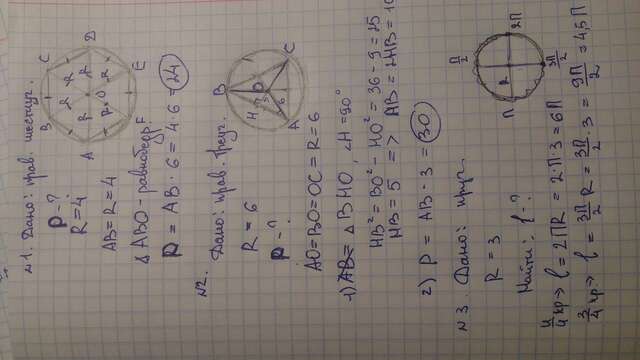 №1. Дано: прав. шестиуг.
P - ?
R = 4
AB = R = 4
Δ ABO - равнобедр
P = AB · 6 = 4 · 6 = 24
A
B
C
D
E
F
O
R
R
R
R
R
R
№2. Дано: прав. треуг.
R = 6
P - ?
AO = BO = OC = R = 6
1) Δ BHO, ∠H = 90°
HB² = BO² - HO² = 36 - 9 = 25
HB = 5 => AB = 2HB = 10
2) P = AB · 3 = 30
B
C
A
O
H
3
6
№3. Дано: круг.
R = 3
Найти: l - ?
4/4 кр → l = 2ПR = 2·П·3 = 6П
3/4 кр → l = 3П/2 R = 3П/2 · 3 = 9П/2 = 4,5П
П/2
2П
П
3П/2
R